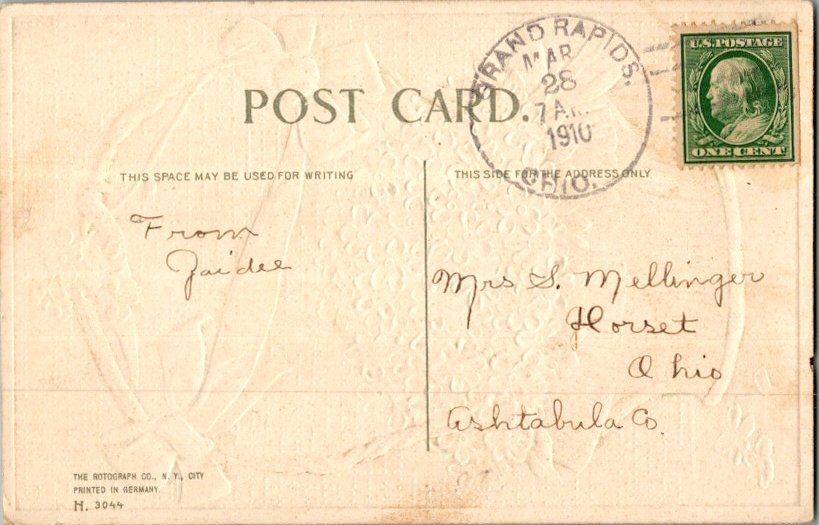 POST CARD.
GRAND RAPIDS,
MAR
28
7 A.M.
1910
OHIO.
U.S. POSTAGE
ONE CENT
THIS SPACE MAY BE USED FOR WRITING
THIS SIDE FOR THE ADDRESS ONLY
From
Zaidee
Mrs S. Mellinger
Dorset
Ohio
Ashtabula Co.
THE ROTOGRAPH CO., N. Y., CITY
PRINTED IN GERMANY.
H. 3044